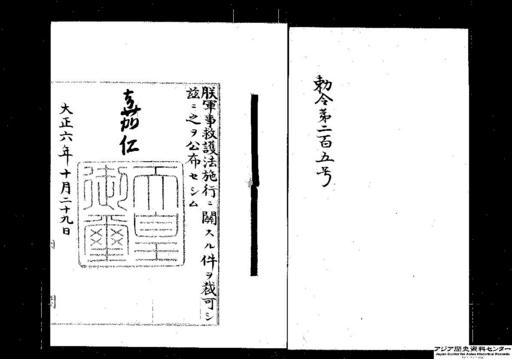 勅令第二百五号
朕軍事救護法施行ニ關スル件ヲ裁可シ
茲ニ之ヲ公布セシム
嘉仁
天皇
御璽
大正六年十月二十九日
内
閣
アジア歴史資料センター
Japan Center for Asian Historical Records